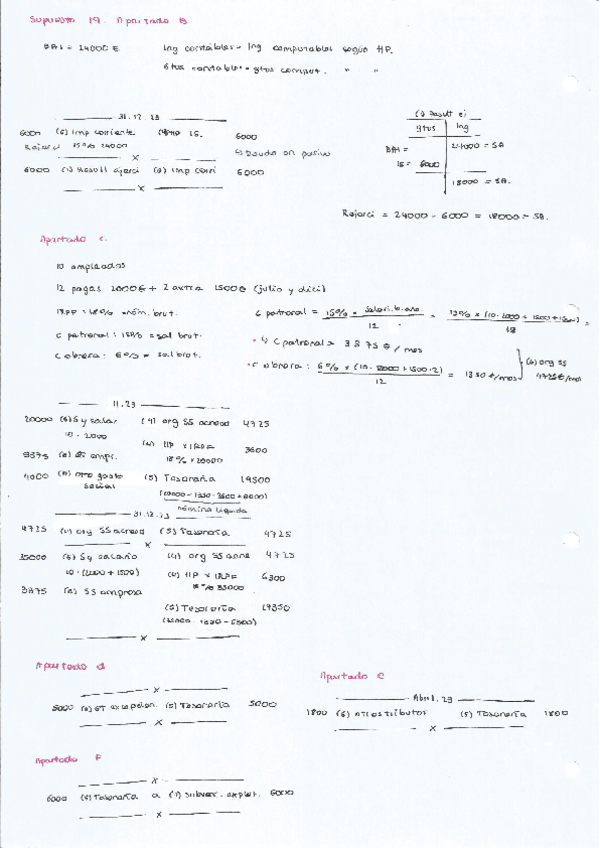 Supuesto 19. Apartado B
BAI = 24000 €. Ing contables = Ing computables según HP.
Gtos contable = gtos comput. " "
31.12.23
6000 (6) Imp corriente (4) HP IS. 6000
25% 24000
X
6000 (1) Result ejerci (6) Imp corri 6000
X
(1) Result ej
gtos Ing
BAI = 24000 = SA
IS = 6000
18000 = SA.
Rejerci = 24000 - 6000 = 18000 = SA.
Apartado C.
10 empleados
12 pagas 2000€ + 2 extra 1500€ (julio y dici)
IRPF = 18% nóm. brut.
C patronal: 15% = sal brut.
C obrera: 6% = sal brut.
C patronal = 15% = / 12 = 15% × (10·2000 + 1500 +
C patronal = 3375 € / mes
C obrera: 6% × (10 · 2000 + 1500·2) / 12 = 1350 €/mes
(4) org SS
4725 €/mes
11.23
20000 (6) S y salar (4) org SS acreed 4725
10 · 2000
(4) HP × IRPF 3600
18% × 20000
3375 (6) SS empr.
4000 (6) otro gasto social (5) Tesorería 19300
nómina líquida
31.12.23
4725 (4) org SS acreed (5) Tesorería 4725
X
35000 (6) S y salario (4) org SS acre 4725
10 · (2000 + 1500)
(4) HP × IRPF 6300
18% 35000
3375 (6) SS empresa
(5) Tesorería
X
Apartado d
X
5000 (6) GT excepcion (5) Tesorería 5000
X
Apartado e
Abril.23
1800 (6) otros tributos (5) Tesorería 1800
X
Apartado F
X
6000 (5) Tesorería a (7) subven. explot. 6000
X